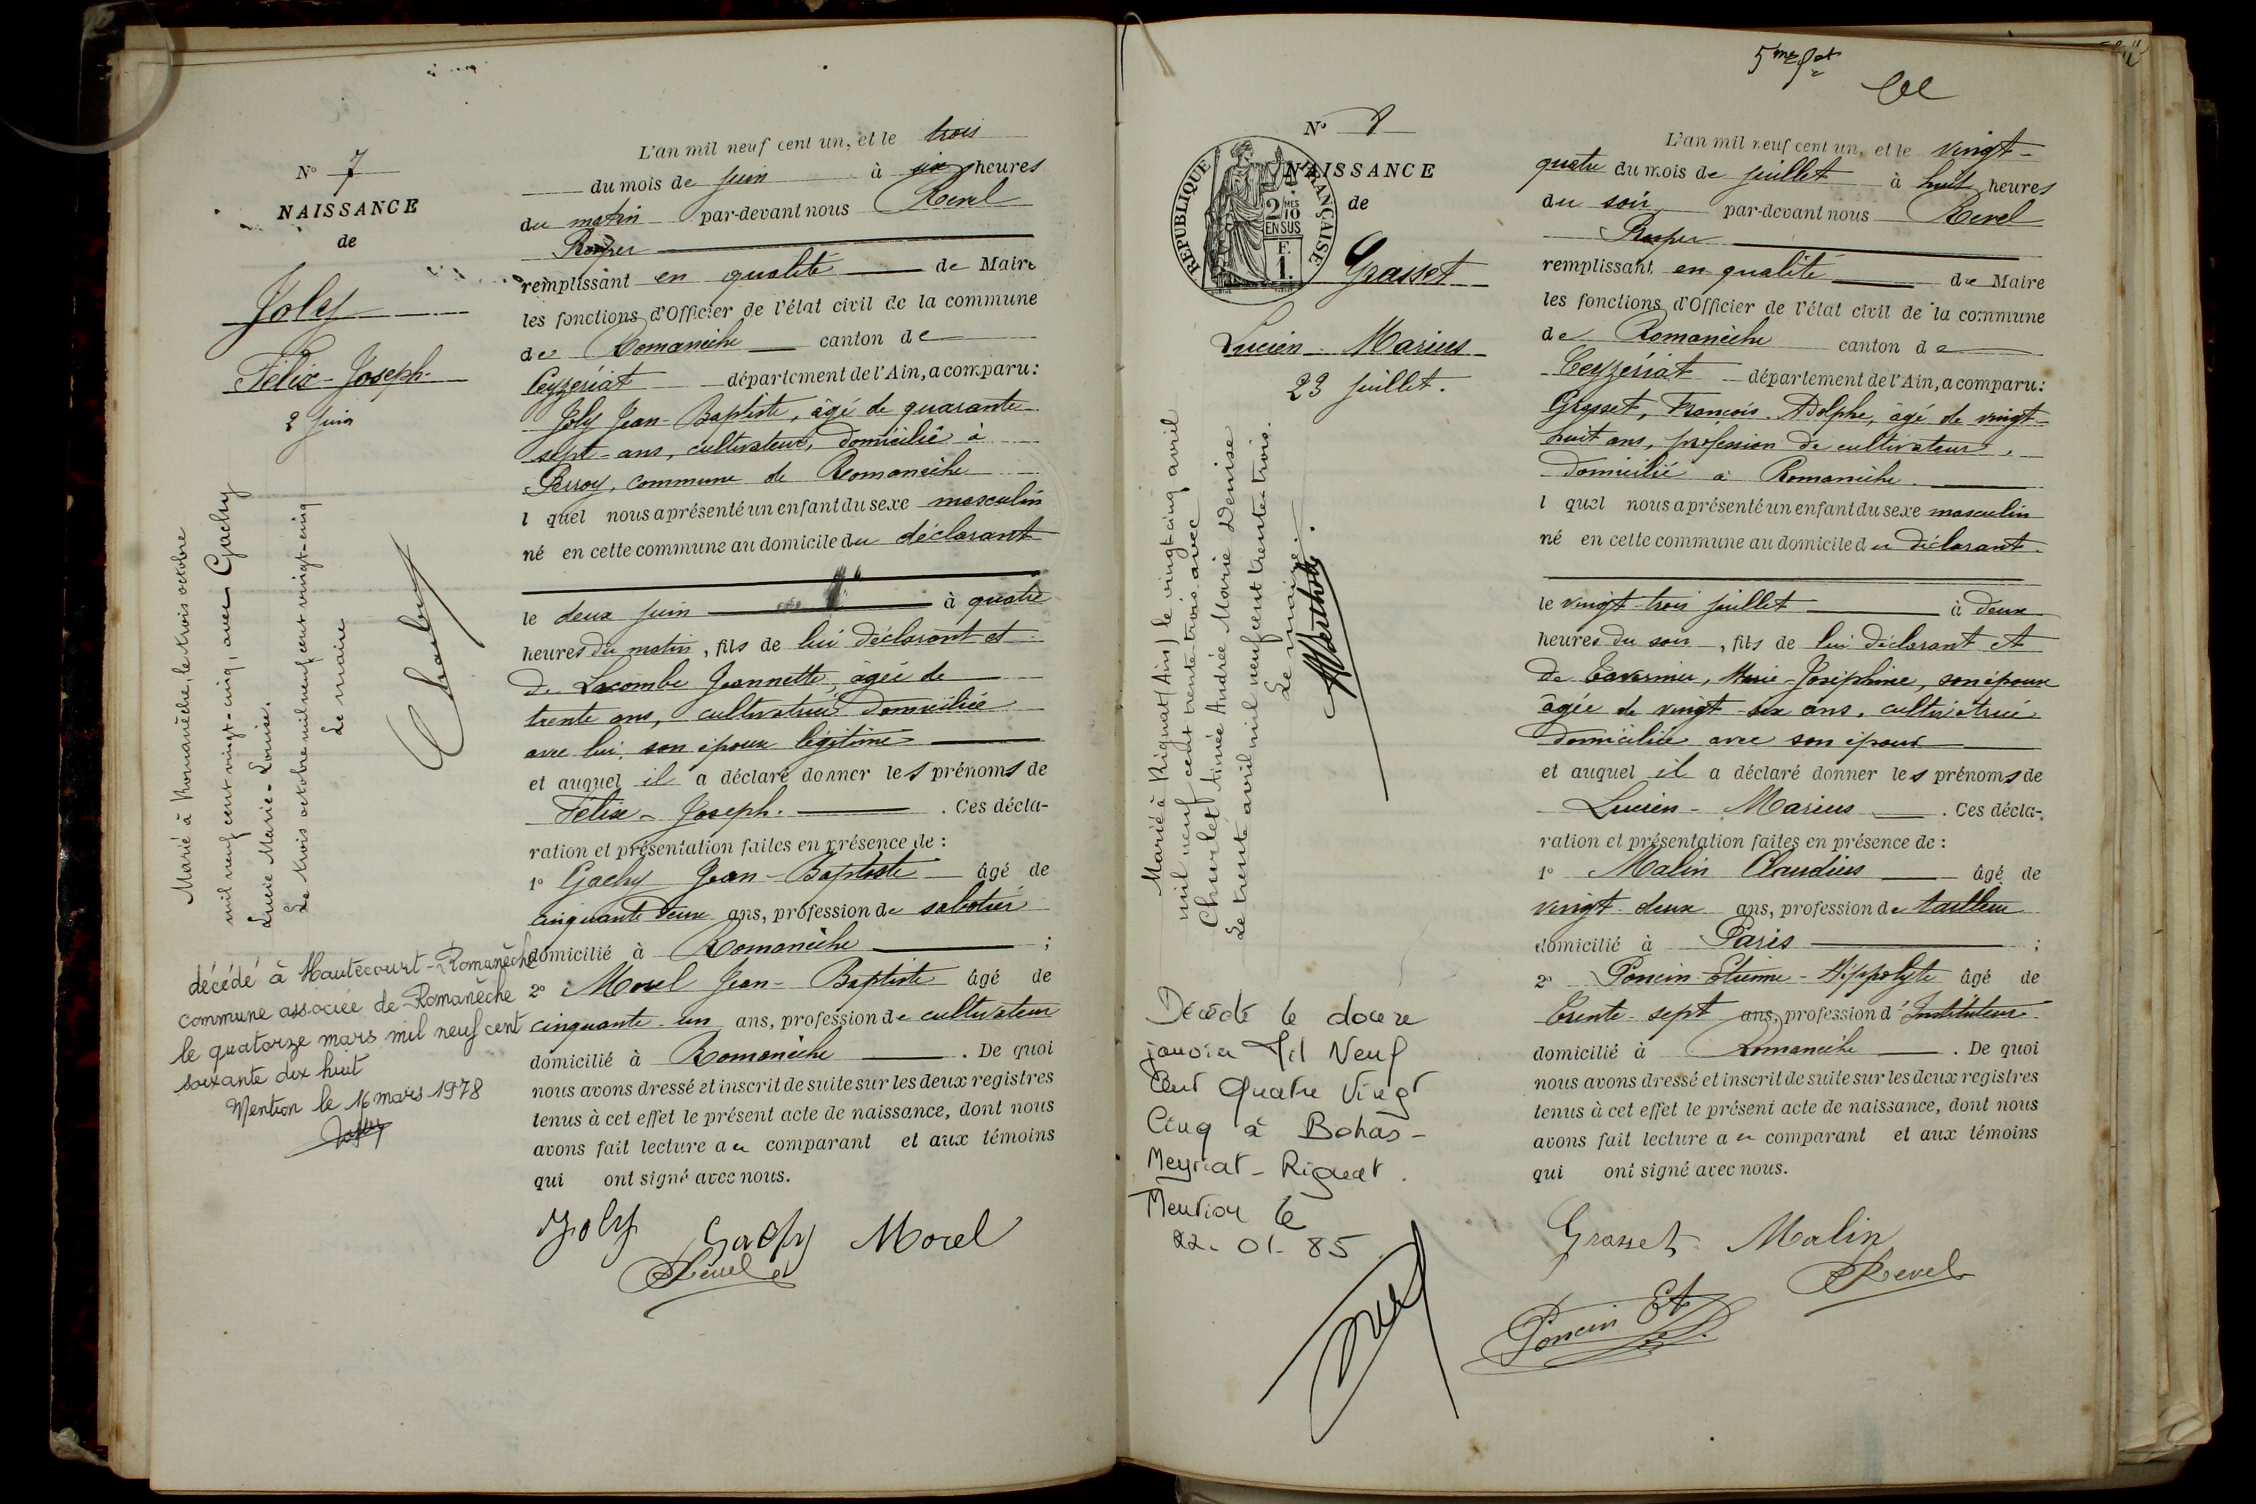 N° 7
NAISSANCE
de
Joly
Félix-Joseph
2 Juin
Marié à Romanèche, le trois octobre
mil neuf cent vingt-cinq, avec Gachy
Lucie Marie-Louise.
Le trois octobre mil neuf cent vingt-cinq
Le maire
décédé à Hautecourt-Romanèche
commune associée de Romanèche
le quatorze mars mil neuf cent
soixante dix huit
Mention le 16 mars 1978
L'an mil neuf cent un, et le trois
du mois de juin à six heures
du matin par-devant nous Revel
Prosper
remplissant en qualité de Maire
les fonctions d'Officier de l'état civil de la commune
de Romanèche canton de
Ceyzériat département de l'Ain, a comparu:
Joly Jean-Baptiste, âgé de quarante
sept ans, cultivateur, domicilié à
commune de Romanèche
l quel nous a présenté un enfant du sexe masculin
né en cette commune au domicile du déclarant
le deux juin à quatre
heures du matin, fils de lui déclarant et
de Lacombe Jeannette, âgée de
trente ans, cultivatrice domiciliée
avec lui, son époux légitime
et auquel il a déclaré donner les prénoms de
Félix-Joseph. Ces décla-
ration et présentation faites en présence de :
1° Gachy Jean-Baptiste âgé de
cinquante deux ans, profession de sabotier
domicilié à Romanèche ;
2° Morel Jean-Baptiste âgé de
cinquante-un ans, profession de cultivateur
domicilié à Romanèche. De quoi
nous avons dressé et inscrit de suite sur les deux registres
tenus à cet effet le présent acte de naissance, dont nous
avons fait lecture au comparant et aux témoins
qui ont signé avec nous.
Joly Gachy Morel
Revel
5me
N° 8
NAISSANCE
de
REPUBLIQUE FRANÇAISE
2 MES
10
EN SUS
F.
1.
Grasset
Lucien-Marius
23 juillet.
Marié à Rignat (Ain) le vingt-cinq avril
mil neuf cent trente-trois avec
Churlet Aimée Andrée Marie Denise
Le trente avril mil neuf cent trente-trois.
Le maire.
Décédé le douze
janvier Mil Neuf
Cent Quatre Vingt
Cinq à Bohas-
Meyriat-Rignat.
Mention le
22-01-85
L'an mil neuf cent un, et le vingt-
quatre du mois de juillet à huit heures
du soir par-devant nous Revel
Prosper
remplissant en qualité de Maire
les fonctions d'Officier de l'état civil de la commune
de Romanèche canton de
Ceyzériat département de l'Ain, a comparu:
Grasset, François-Adolphe, âgé de vingt-
huit ans, profession de cultivateur,
domicilié à Romanèche.
l quel nous a présenté un enfant du sexe masculin
né en cette commune au domicile du déclarant.
le vingt-trois juillet à deux
heures du soir, fils de lui déclarant et
de Tavernier, Marie-Joséphine, son épouse
âgée de vingt-six ans, cultivatrice
domiciliée avec son époux
et auquel il a déclaré donner les prénoms de
Lucien-Marius. Ces décla-
ration et présentation faites en présence de :
1° Malin Claudius âgé de
vingt-deux ans, profession de tailleur
domicilié à Paris ;
2° Poncin Etienne-Hippolyte âgé de
trente-sept ans, profession d'Instituteur
domicilié à Romanèche. De quoi
nous avons dressé et inscrit de suite sur les deux registres
tenus à cet effet le présent acte de naissance, dont nous
avons fait lecture au comparant et aux témoins
qui ont signé avec nous.
Grasset Malin
Revel
Poncin Et